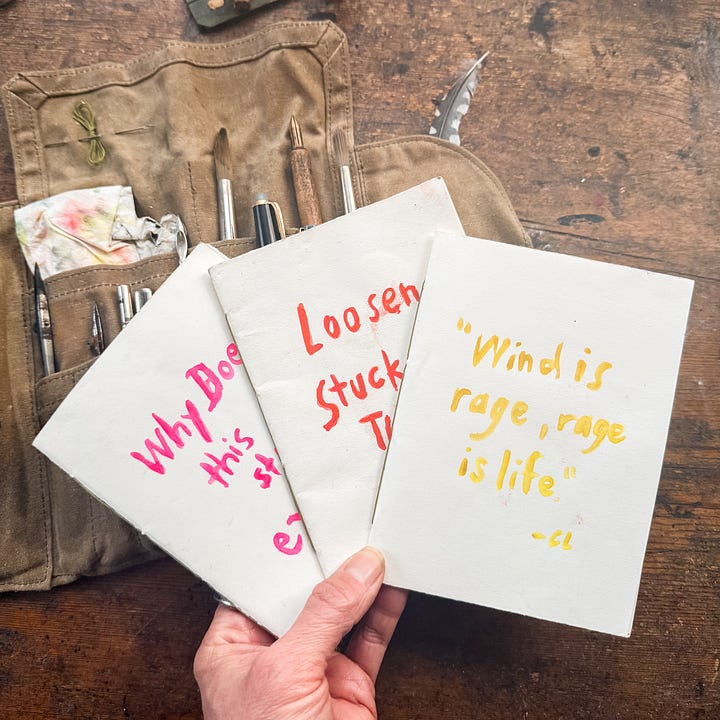 Why Doe
this
st
e
Loosen
Stuck
T
"Wind is
rage, rage
is life."
-CL